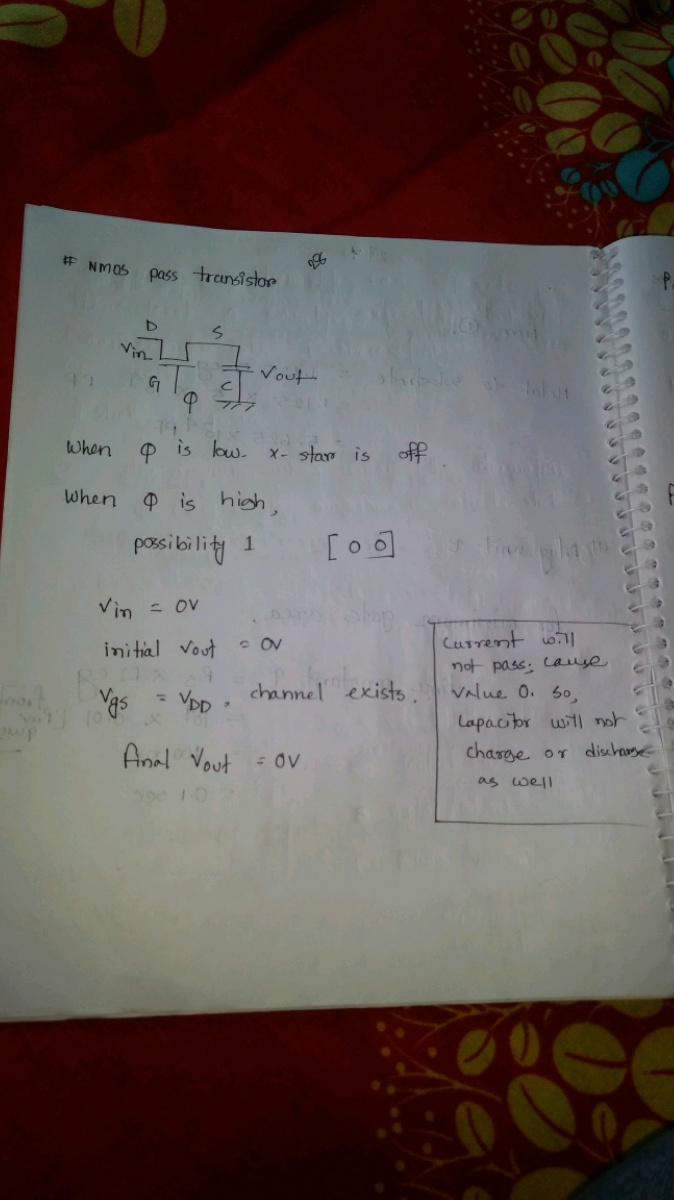 # NMOS pass transistor
D S
Vin
G C Vout
Φ
When Φ is low x-star is off.
When Φ is high,
possibility 1 [0 0]
Vin = 0V
initial Vout = 0V
Vgs = VDD, channel exists.
final Vout = 0V
Current will
not pass; cause
value 0. So,
Capacitor will not
charge or discharge
as well
P